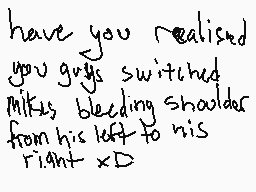 have you realised
you guys switched
Mikes bleeding shoulder
from his left to his
right xD